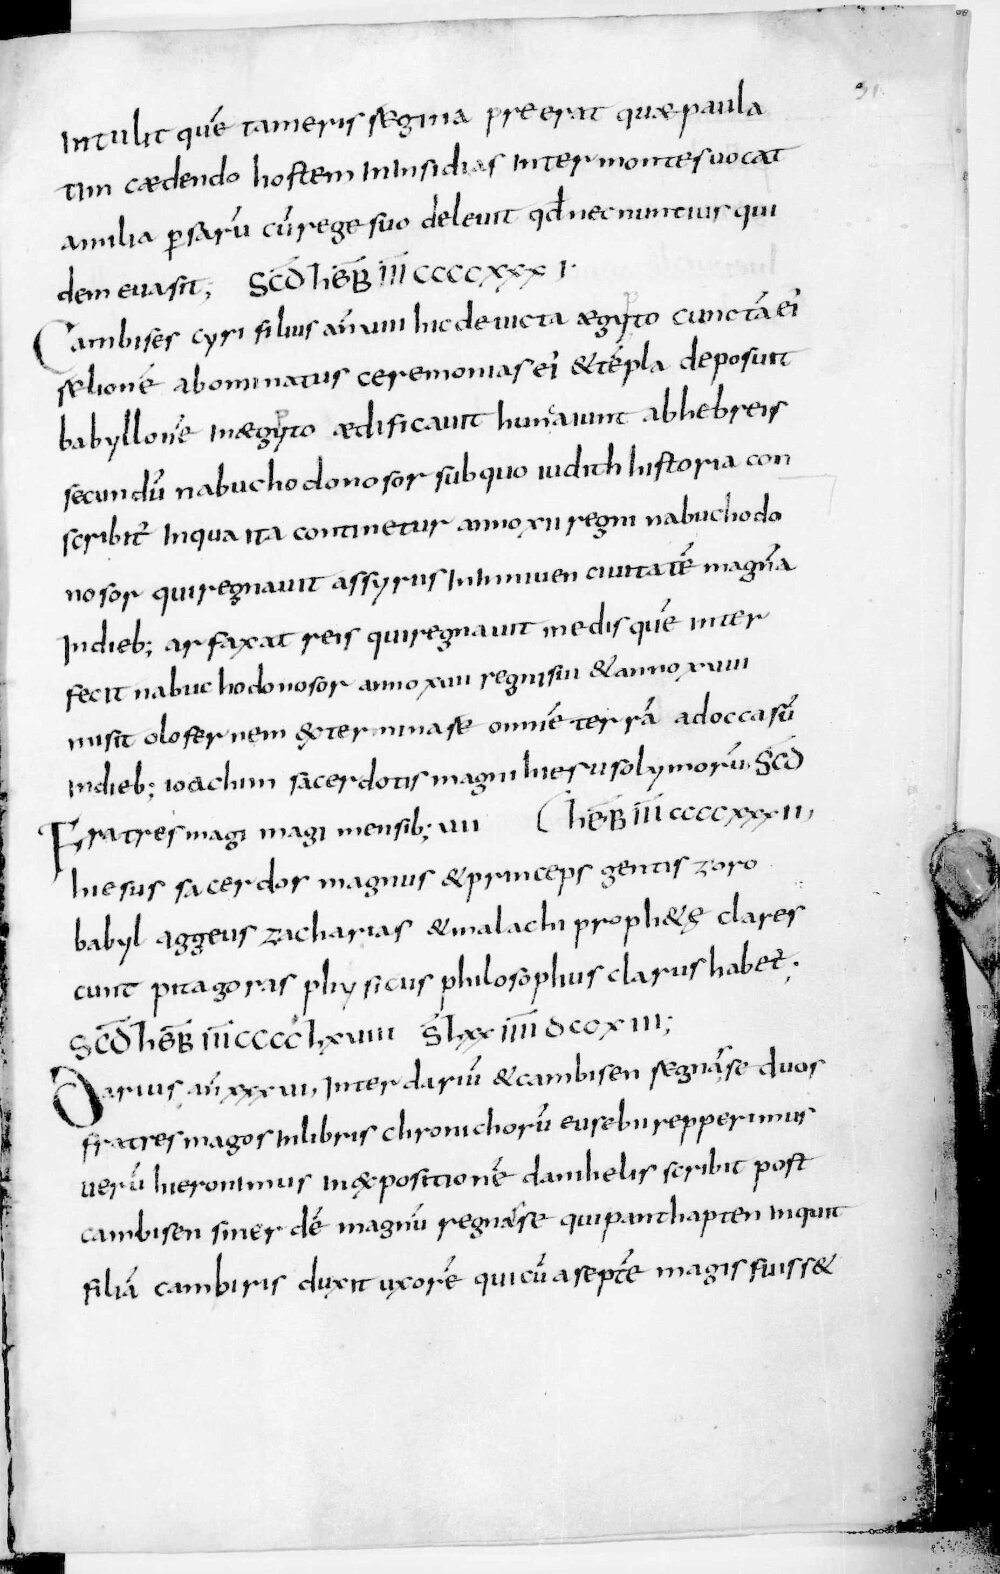 31.
Intulit quē tameris regina preerat quae paula
tim caedendo hostem ininsidias inter montes uocat
amilia ꝑsarū cū rege suo deleuit qd̄ nec nuntius qui
dem euasit; Sc̄d heb̄ īīī ccccxxx i·
Cambises cyri filius an̄ uiii hic deuicta aegypto cunctā ei
relionē abominatus ceremonias ei &tēpla deposuit
babyllonē inaegypto aedificauit hunaiunt abhebreis
secundū nabuchodonosor subquo iudith historia con
scribit̄ inqua ita continetur anno xii regni nabuchodo
nosor qui regnauit assyrus inniniuen ciuitatē magnā
Indieb; arfaxat reis qui regnauit medis quē inter
fecit nabuchodonosor anno xuii regni sui &anno xuiii
misit olofernem &terminare omnē terrā adoccasū
Indieb; ioachim sacerdotis magni hiesusolymorū. Sc̄d
Fratres magi magi mensib; uii (heb̄ īīī ccccxxxii,
hiesus sacerdos magnus &princeps gentis zoro
babyl aggeus zacharias &malachi proph&ę clares
cunt pitagoras physicus philosophus clarus habet̄;
Sc̄d heb̄ īīī cccclxuiiii S̄ lxx īīīī dccxiii;
Darius an̄ xxxui, Inter dariū &cambisen regnāse duos
fratres magos inlibris chronichorū eusebii repperimus
uerū hieronimus in&positionē danihelis scribit post
cambisen sinerdē magnū regnase qui panthapten inquit
filiā cambiris duxit uxorē qui cū aseptē magis fuiss&